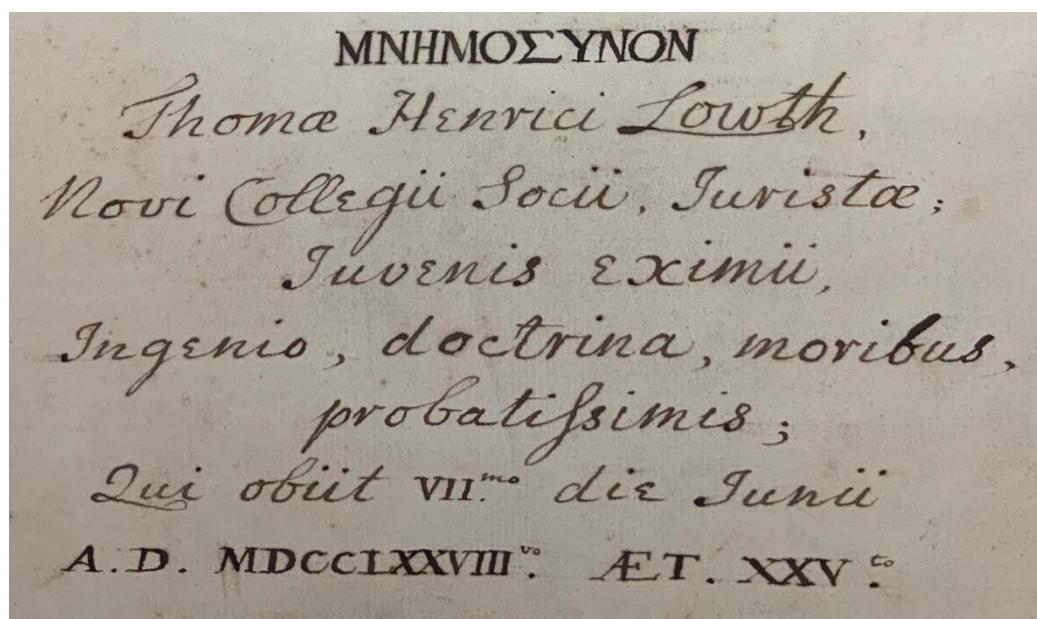 ΜΝΗΜΟΣΥΝΟΝ
Thomæ Henrici Lowth,
Novi Collegii Socii, Iuristæ;
Iuvenis eximii,
Ingenio, doctrina, moribus,
probatiſsimis;
Qui obiit VII.mo die Iunii
A.D. MDCCLXXVIII.vo ÆT. XXV.to